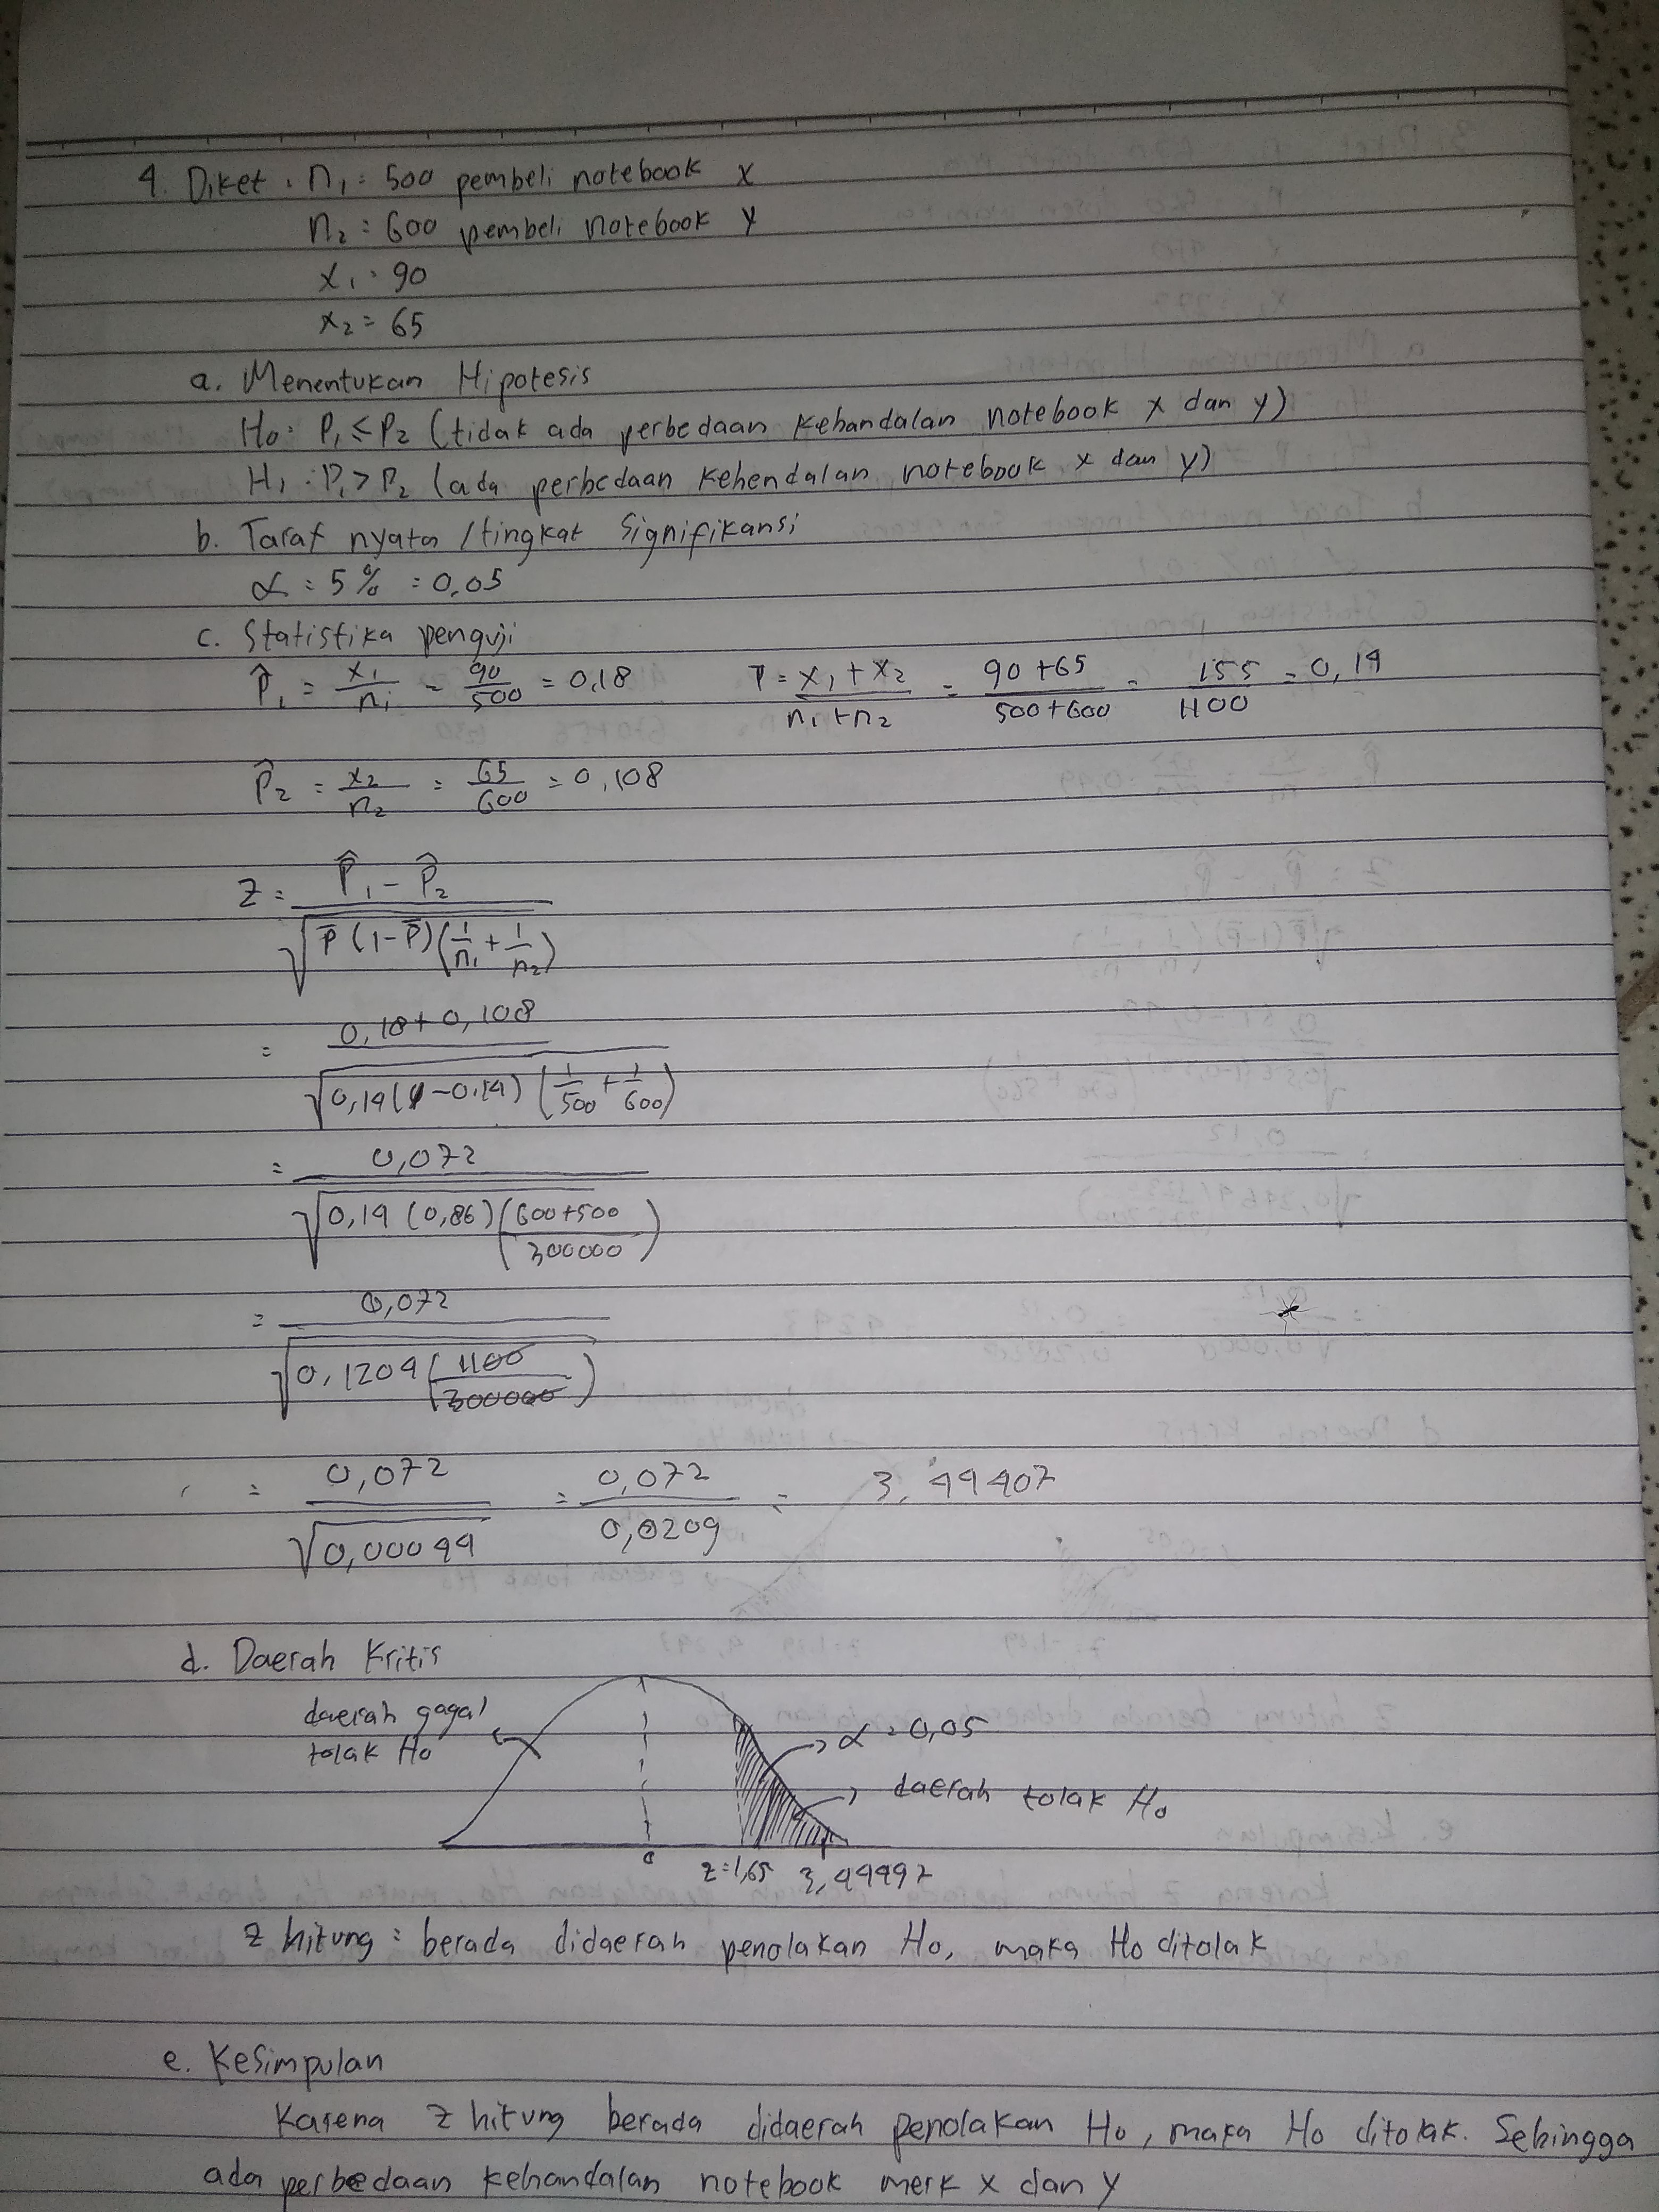 4. Diket : n1 = 500 pembeli notebook x
n2 = 600 pembeli notebook y
x1 = 90
x2 = 65
a. Menentukan Hipotesis
Ho : P1 ≤ P2 (tidak ada perbedaan kehandalan notebook x dan y)
H1 : P1 > P2 (ada perbedaan kehendalan notebook x dan y)
b. Taraf nyata / tingkat Signifikansi
α = 5% = 0,05
c. Statistika penguji
P̂1 = x1/n1 = 90/500 = 0,18 P = x1 + x2 / n1 + n2 = 90 + 65 / 500 + 600 = 155 / 1100 = 0,14
P̂2 = x2/n2 = 65/600 = 0,108
Z = P̂1 - P̂2 / √P̄ (1-P̄) (1/n1 + 1/n2)
= 0,18 + 0,108 / √0,14 (1-0,14) (1/500 + 1/600)
= 0,072 / √0,14 (0,86) (600+500 / 300000)
= 0,072 / √0,1204 (1100 / 300000)
= 0,072 / √0,00044 = 0,072 / 0,0209 = 3,44407
d. Daerah Kritis
daerah gagal
tolak Ho
α = 0,05
daerah tolak Ho
z = 1,65 3,44497
z hitung : berada didaerah penolakan Ho, maka Ho ditolak
e. Kesimpulan
Karena z hitung berada didaerah penolakan Ho, maka Ho ditolak. Sehingga
ada perbedaan kehandalan notebook merk x dan y